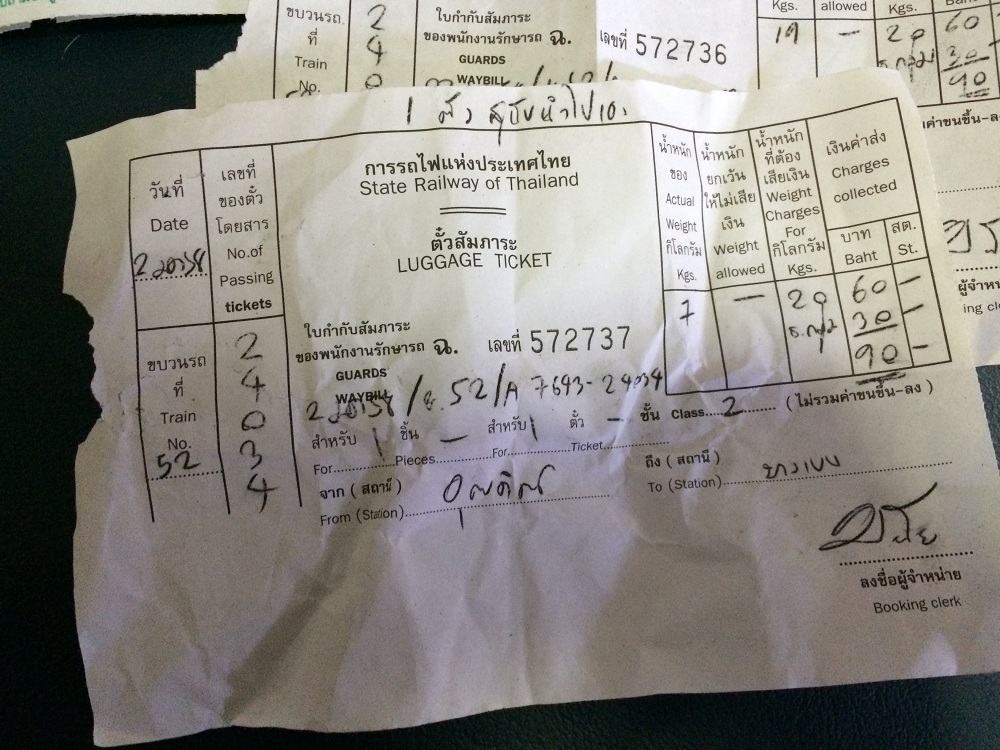 ขบวนรถ
ที่
Train
No.
2
4
0
ใบกำกับสัมภาระ
ของพนักงานรักษารถ ฉ.
GUARDS
WAYBILL
เลขที่ 572736
Kgs. allowed Kgs. Baht
19 — 20 60
30
90
การรถไฟแห่งประเทศไทย
State Railway of Thailand
ตั๋วสัมภาระ
LUGGAGE TICKET
วันที่
Date
เลขที่
ของตั๋ว
โดยสาร
No.of
Passing
tickets
ขบวนรถ
ที่
Train
No.
52
2
4
0
3
4
ใบกำกับสัมภาระ
ของพนักงานรักษารถ ฉ. เลขที่ 572737
GUARDS
WAYBILL
52/A 7643-24034
สำหรับ 1 ชิ้น — สำหรับ 1 ตั๋ว — ชั้น Class 2 (ไม่รวมค่าขนขึ้น-ลง)
For Pieces For Ticket
จาก (สถานี)
From (Station)
ถึง (สถานี)
To (Station)
น้ำหนัก
ของ
Actual
Weight
กิโลกรัม
Kgs.
7
น้ำหนัก
ยกเว้น
ให้ไม่เสีย
เงิน
Weight
allowed
—
น้ำหนัก
ที่ต้อง
เสียเงิน
Weight
Charges
For
กิโลกรัม
Kgs.
20
เงินค่าส่ง
Charges
collected
บาท สต.
Baht St.
60 —
30 —
90 —
ลงชื่อผู้จำหน่าย
Booking clerk